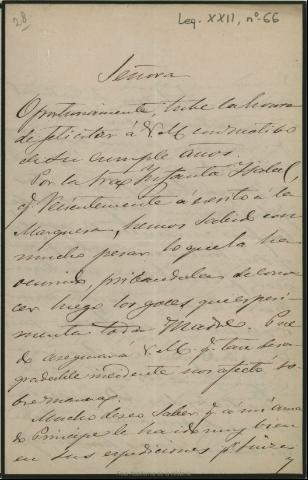 28
Leg. XXII, nº 66
Señora
Oportunamente tube la honra
de felicitar á V.M. con motivo
de su cumple años.
Por la Infanta Isabel,
q. recientemente á escrito á la
Marquesa, hemos sabido con
mucho pesar lo que la ha
ocurrido, pribandola de cono
cer luego los goces que esperi
menta toda Madre. Pue
do asegurar a V.M. q. tan desa
gradable incidente nos afectó so
bremanera.
Mucho deseo saber q. á mi ama
do Principe le ha ido muy bien
en sus espediciones pr. Suiza
y